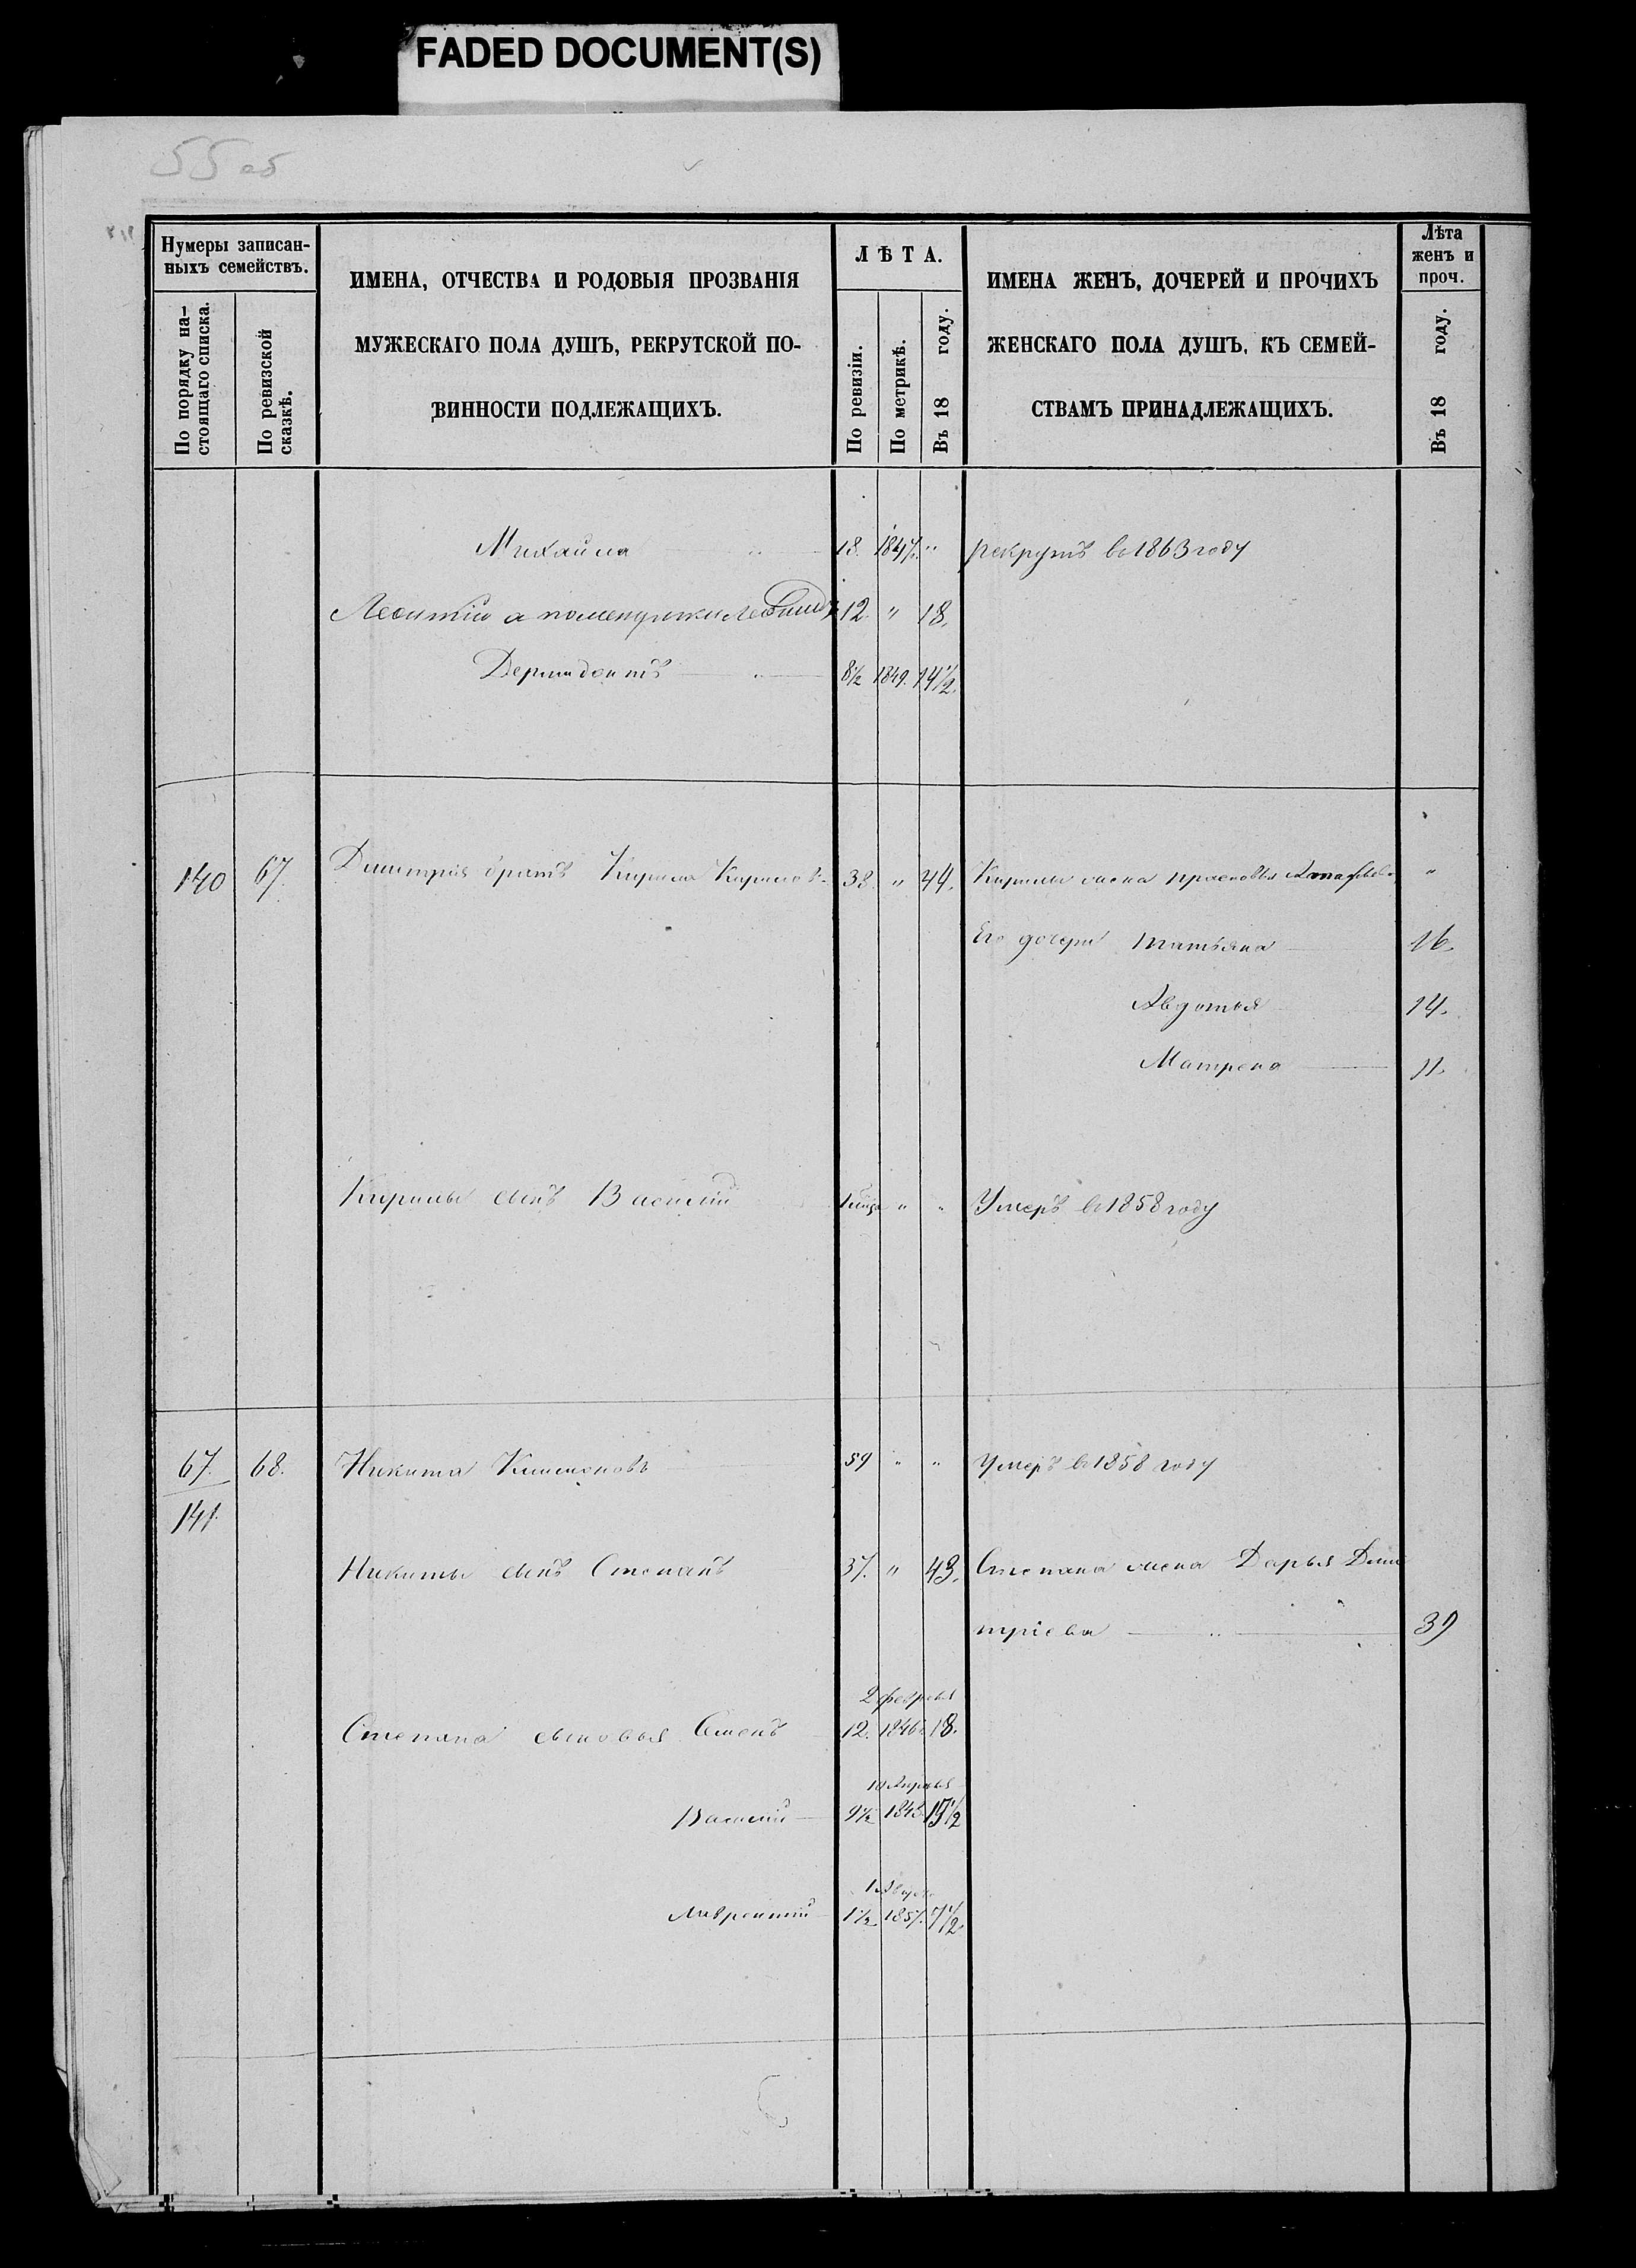 FADED DOCUMENT(S)
55 об
Нумеры записан-
ныхъ семействъ.
По порядку на-
стоящаго списка.
По ревизской
сказкѣ.
ИМЕНА, ОТЧЕСТВА И РОДОВЫЯ ПРОЗВАНІЯ
МУЖЕСКАГО ПОЛА ДУШЪ, РЕКРУТСКОЙ ПО-
ВИННОСТИ ПОДЛЕЖАЩИХЪ.
ЛѢТА.
По ревизіи.
По метрикѣ.
Въ 18 году.
ИМЕНА ЖЕНЪ, ДОЧЕРЕЙ И ПРОЧИХЪ
ЖЕНСКАГО ПОЛА ДУШЪ, КЪ СЕМЕЙ-
СТВАМЪ ПРИНАДЛЕЖАЩИХЪ.
Лѣта
женъ и
проч.
Въ 18 году.
Михайла 18. " рекрутъ въ 1863 году
12. " 18.
8½ 1849. 14½
140 67. Дмитрія братъ Кирила Кирилов 38 " 44. Кирилы жена Прасковья "
Его дочери Татьяна 16.
Авдотья 14.
Матрена 11.
Кирилы сынъ Василій " " Умеръ въ 1858 году
67. 68. Никита 59 " " Умеръ въ 1858 году
141.
Никиты сынъ Степанъ 37. " 43. Степана жена Дарья Дми
тріева 39
2 февраля
Степана сыновья Семенъ 12. 1846 18.
10 Апреля
Василій 9½ 1848 15½
Лаврентій 1½ 1857. 7½